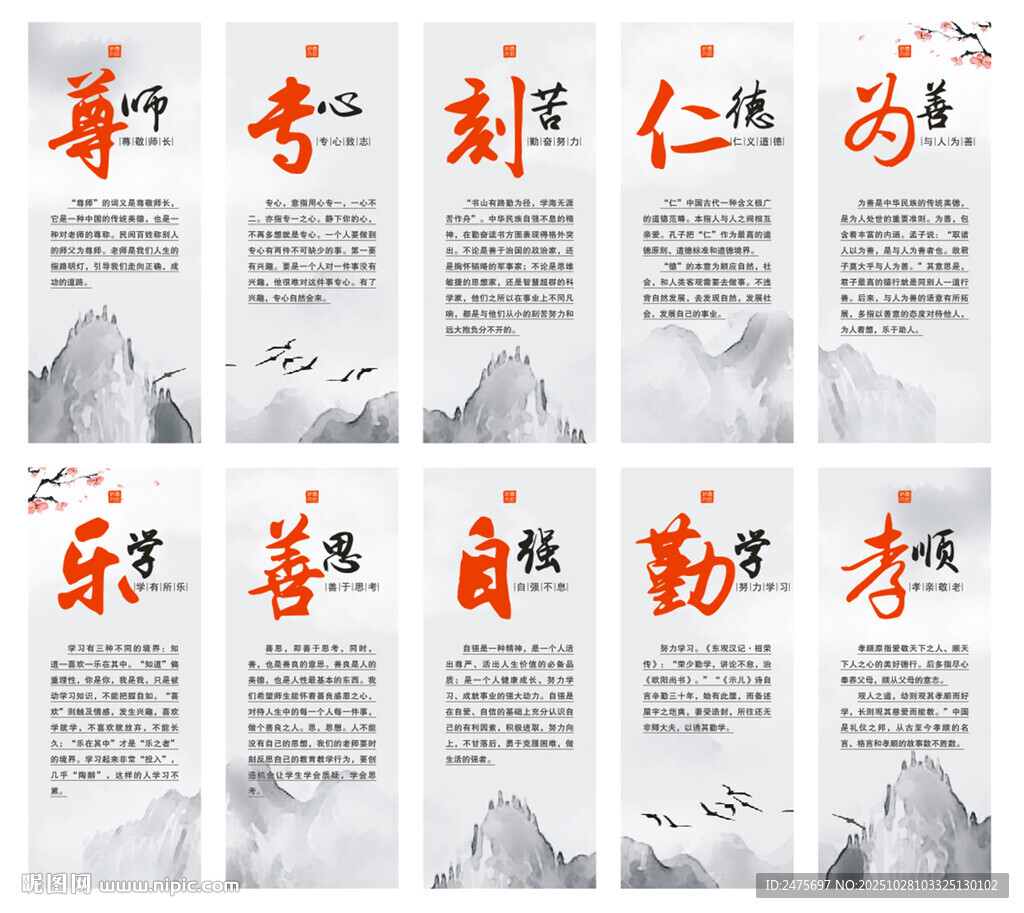 尊师
尊敬师长
“尊师”的词义是尊敬师长，
它是一种中国的传统美德，也是一
种对老师的尊称。民间百姓称别人
的师父为尊师。老师是我们人生的
指路明灯，引导我们走向正确、成
功的道路。
专心
专心致志
专心，意指用心专一，一心不
二。亦指专一之心。静下你的心，
不再多想就是专心。一个人要做到
专心有两件不可缺少的事。第一要
有兴趣。要是一个人对一件事没有
兴趣，他很难对这件事专心。有了
兴趣，专心自然会来。
刻苦
勤奋努力
“书山有路勤为径，学海无涯
苦作舟”。中华民族自强不息的精
神，在勤奋读书方面表现得格外突
出。不论是善于治国的政治家，还
是胸怀韬略的军事家；不论是思维
敏捷的思想家，还是智慧超群的科
学家，他们之所以在事业上不同凡
响，都是与他们从小的刻苦努力和
远大抱负分不开的。
仁德
仁义道德
“仁”中国古代一种含义极广
的道德范畴。本指人与人之间相互
亲爱。孔子把“仁”作为最高的道
德原则、道德标准和道德境界。
“德”的本意为顺应自然，社
会，和人类客观需要去做事。不违
背自然发展，去发现自然，发展社
会，发展自己的事业。
为善
与人为善
为善是中华民族的传统美德，
是为人处世的重要准则。为善，包
含着丰富的内涵。孟子说：“取诸
人以为善，是与人为善者也。故君
子莫大乎与人为善。”其意思是，
君子最高的德行就是同别人一道行
善。后来，与人为善的语意有所拓
展，多指以善意的态度对待他人，
为人着想，乐于助人。
乐学
学有所乐
学习有三种不同的境界：知
道—喜欢—乐在其中。“知道”偏
重理性，你是你，我是我，只是被
动学习知识，不能把握自如。“喜
欢”则触及情感，发生兴趣，喜欢
学就学，不喜欢就放弃，不能长
久；“乐在其中”才是“乐之者”
的境界。学习起来非常“投入”，
几乎“陶醉”，这样的人学习不
累。
善思
善于思考
善思，即善于思考，同时，
善，也是善良的意思。善良是人的
美德，也是人性最基本的东西。我
们希望师生能怀着善良感恩之心，
对待人生中的每一个人每一件事，
做个善良之人。思，思想。人不能
没有自己的思想，我们的老师要时
刻反思自己的教育教学行为，要创
造机会让学生学会质疑，学会思
考。
自强
自强不息
自强是一种精神，是一个人活
出尊严、活出人生价值的必备品
质；是一个人健康成长、努力学
习、成就事业的强大动力。自强是
在自爱、自信的基础上充分认识自
己的有利因素，积极进取，努力向
上，不甘落后，勇于克服困难，做
生活的强者。
勤学
努力学习
努力学习。《东观汉记·桓荣
传》：“荣少勤学，讲论不怠，治
《欧阳尚书》。”“《示儿》诗自
言辛勤三十年，始有此屋，而备述
屋宇之垲爽，妻受诰封，所往还无
非卿大夫，以诱其勤学。
孝顺
孝亲敬老
孝顺原指爱敬天下之人、顺天
下人之心的美好德行。后多指尽心
奉养父母，顺从父母的意志。
观人之道，幼则观其孝顺而好
学，长则观其慈爱而能教。”中国
是礼仪之邦，从古至今孝顺的名
言、格言和孝顺的故事数不胜数。
昵图网 www.nipic.com
ID:2475697 NO:20251028103325130102